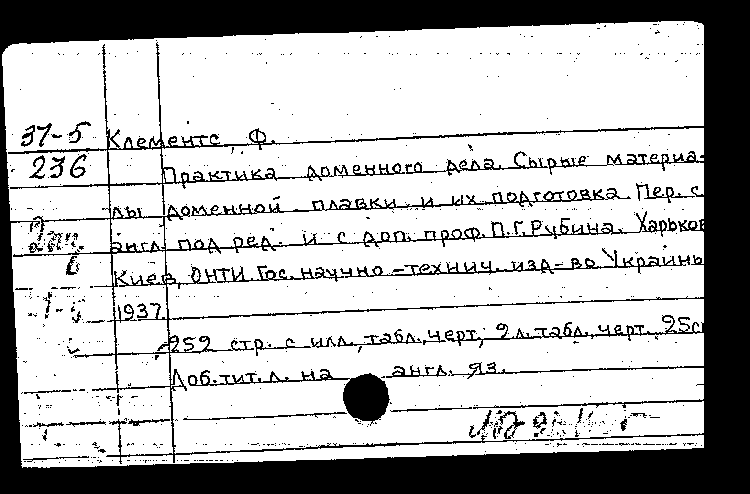 37-5 Клементс, Ф.
236 Практика доменного дела. Сырые материа-
лы доменной плавки и их подготовка. Пер. с
англ. под ред. и с доп. проф. П.Г. Рубина. Харьков
Киев, ОНТИ. Гос. научно-технич. изд-во Украины
1937
252 стр. с илл., табл., черт., 2 л. табл., черт. 25с
Доб. тит. л. на англ. яз.